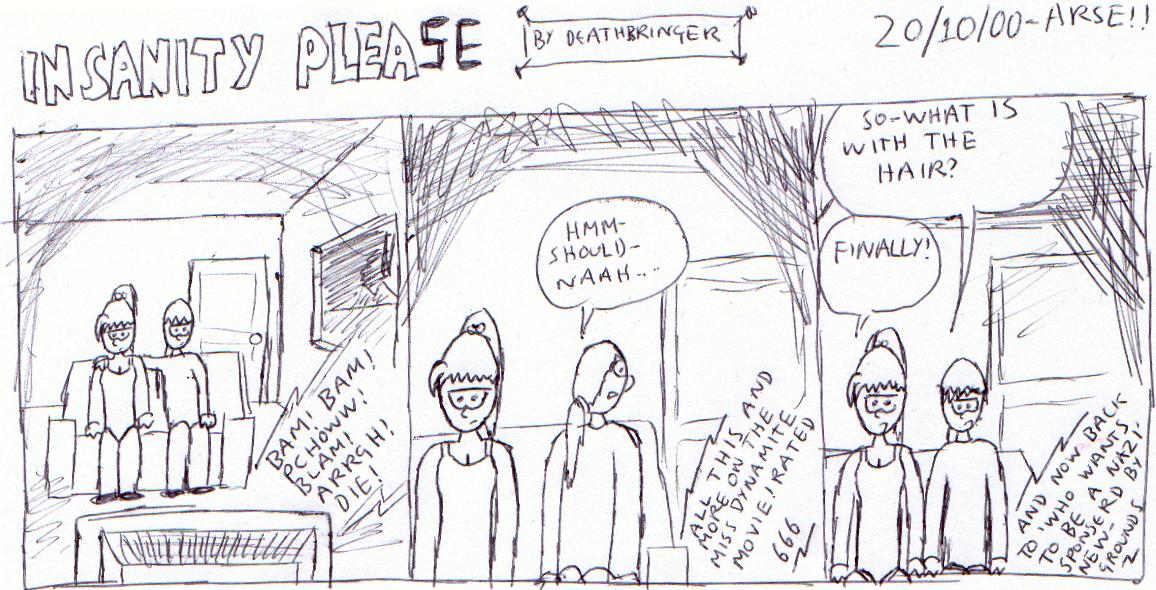 INSANITY PLEASE
BY DEATHBRINGER
20/10/00-ARSE!!
BAM! BAM!
PCHOW!
BLAM!
ARRGH!
DIE!
HMM-
SHOULD-
NAAH...
ALL THIS AND
MORE ON THE
MISS DYNAMITE
MOVIE! RATED
666
SO-WHAT IS
WITH THE
HAIR?
FINALLY!
AND NOW BACK
TO 'WHO WANTS
TO BE A NAZI'-
SPONSERD BY
NEW-
GROUNDS